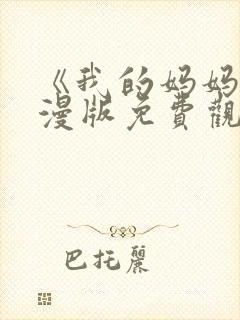 《我的妈妈
漫版免費觀
巴托麗